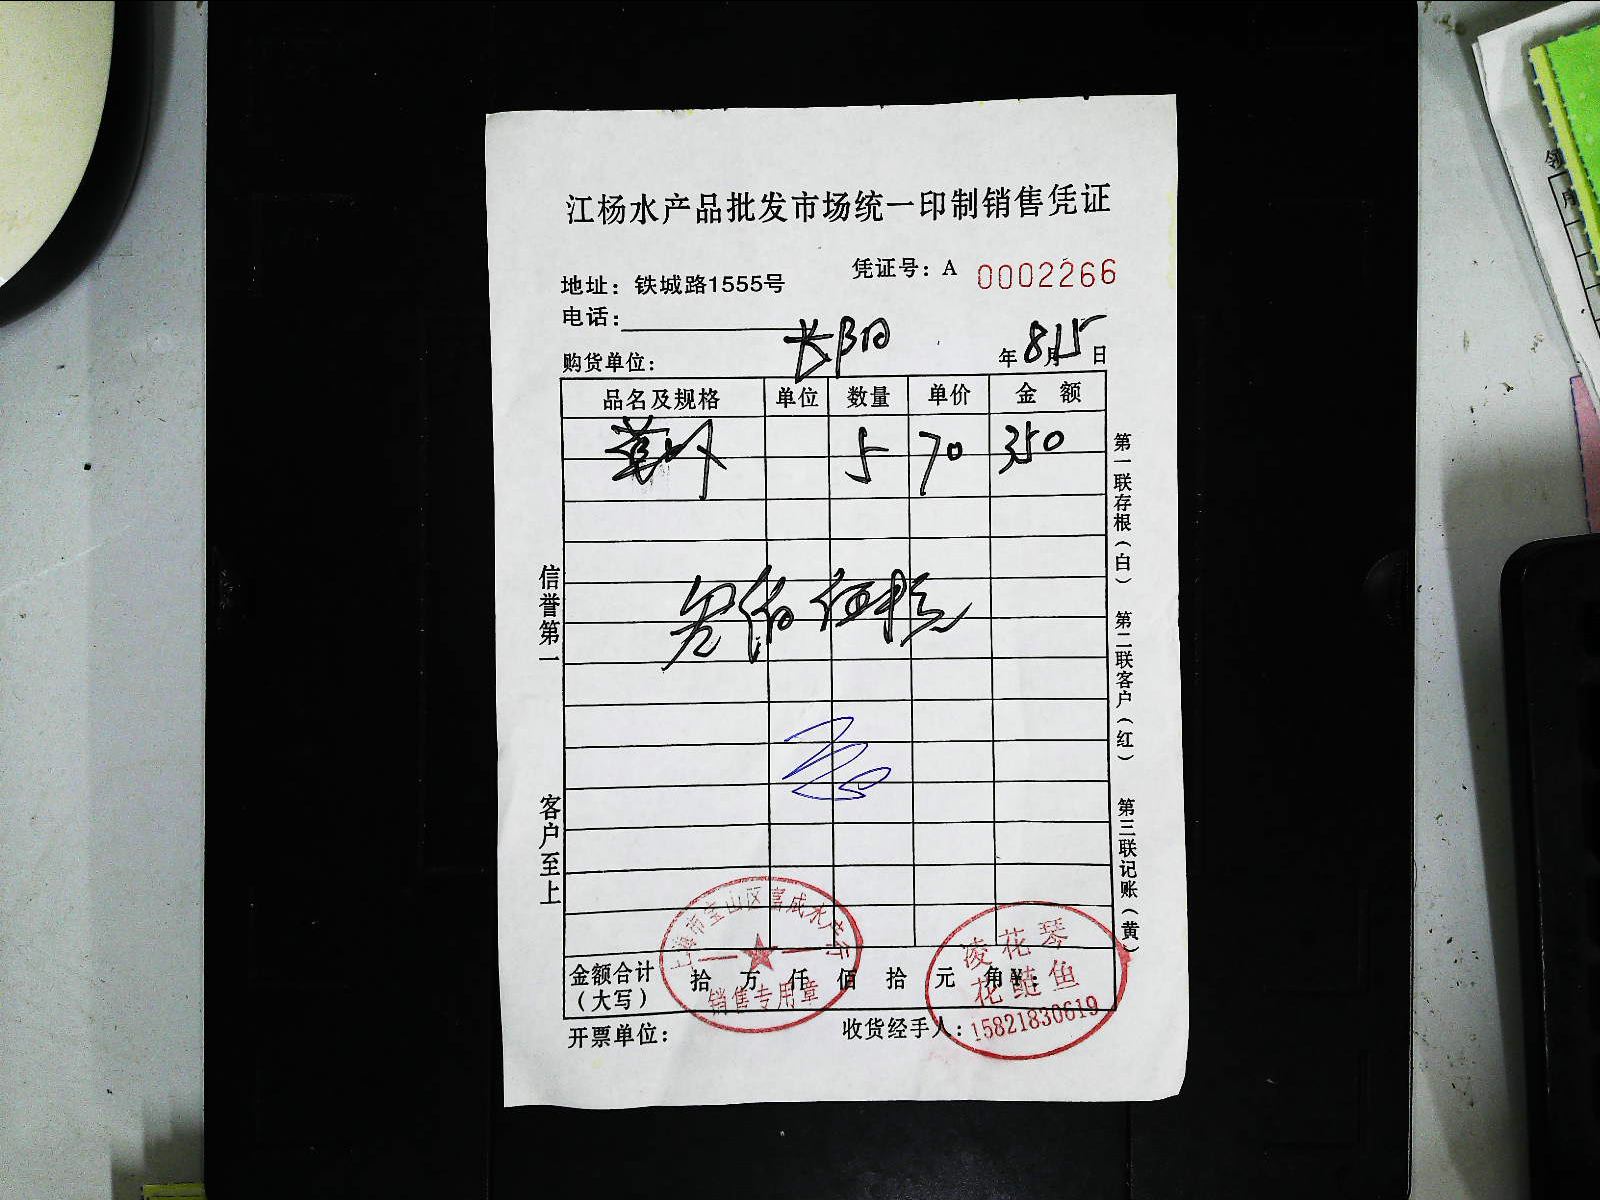 江杨水产品批发市场统一印制销售凭证
凭证号：A 0002266
地址：铁城路1555号
电话：
购货单位： 长阳 年 8月15日
品名及规格 单位 数量 单价 金额
5 70 350
叁佰伍拾元
信誉第一
客户至上
第一联存根（白）
第二联客户（红）
第三联记账（黄）
金额合计（大写） 拾 万 仟 佰 拾 元 角 ¥：
开票单位： 收货经手人：
上海市宝山区富成水产行
销售专用章
凌花琴
花鲢鱼
15821830619
领